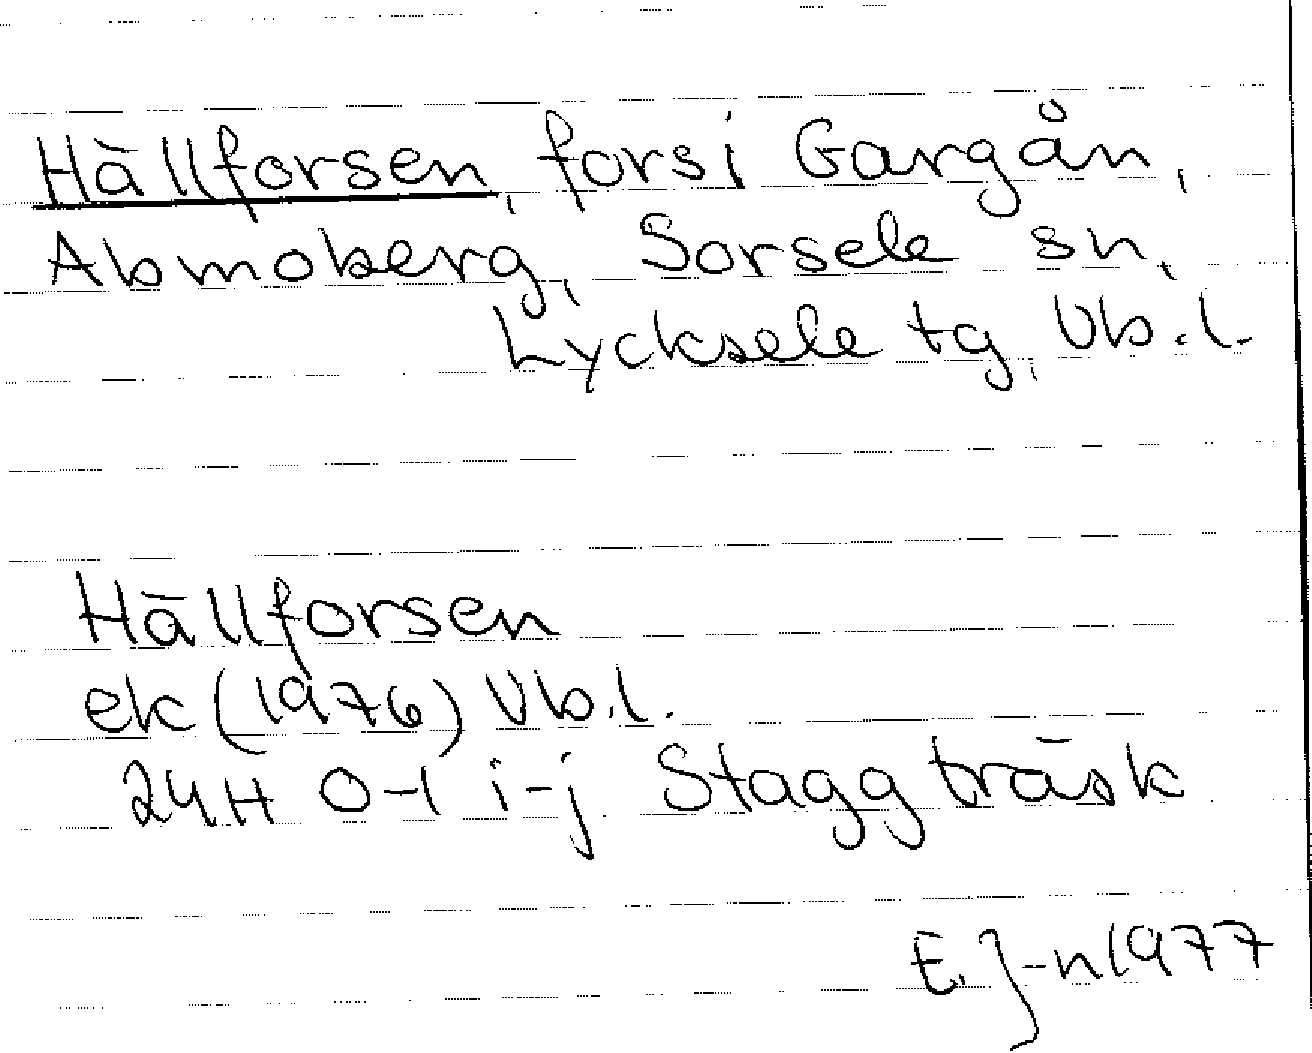 Hällforsen, fors i Gargån,
Abmoberg, Sorsele sn,
Lycksele tg, Vb.l.
Hällforsen
ek (1976) Vb.l.
24H 0-1 i-j Staggträsk
E.J-n 1977